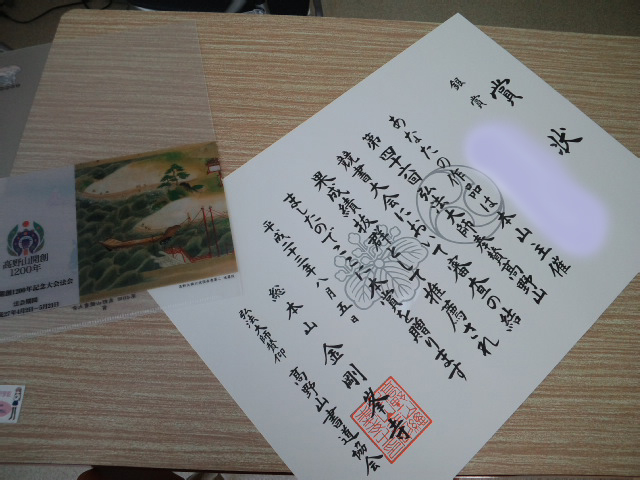 賞状
銀賞
あなたの作品は本山主催
弘法大師奉賛高野山
第四十六回
競書大会において審査の結
果成績抜群と推薦され
ましたのでここに本賞を贈ります
平成二十三年八月五日
総本山金剛峯寺
弘法大師奉仰 高野山書道協会
高野山開創
1200年